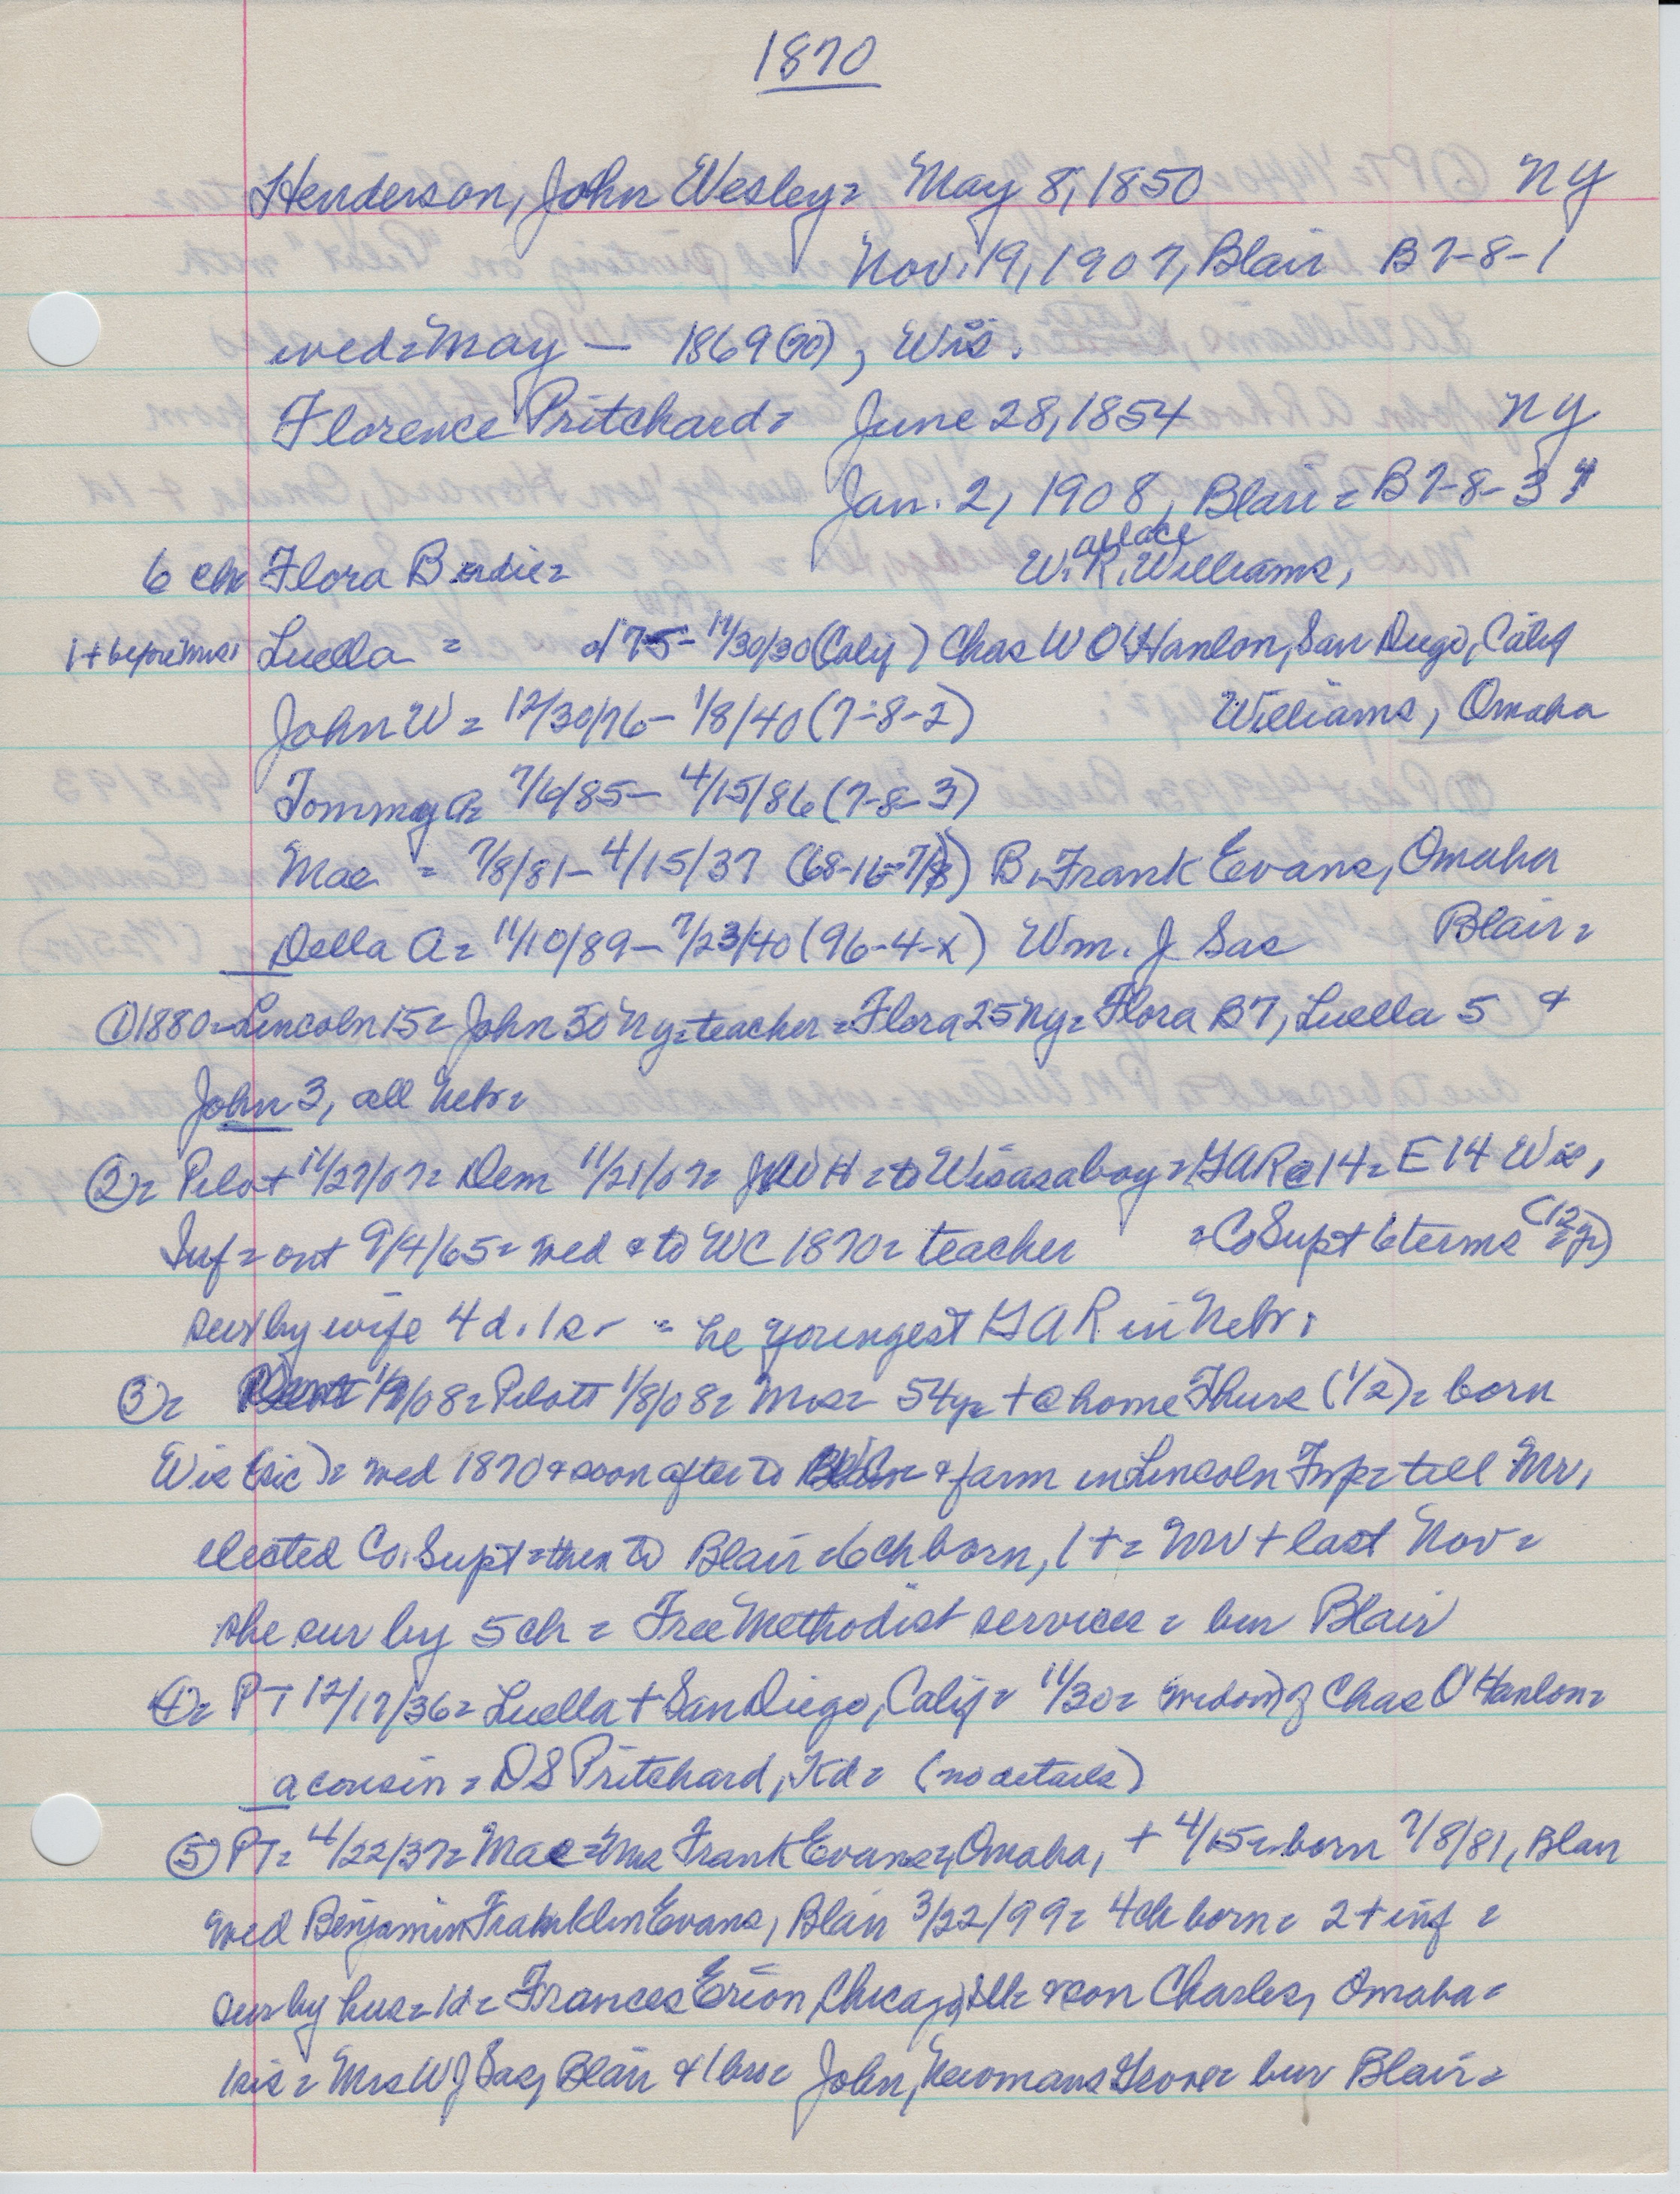 1870
Henderson, John Wesley = May 8, 1850 NY
Nov. 19, 1907, Blair B7-8-1
wed = May — 1869(70), Wis.
Florence Pritchard = June 28, 1854 NY
Jan. 2, 1908, Blair = B7-8-3
allace
6 ch Flora Birdie = W.R. Williams,
1 + before Mrs Luella = d 75 - 11/30/30 (Calif) Chas W O'Hanlon, San Diego, Calif
John W = 12/30/76 - 1/8/40 (7-8-2) Williams, Omaha
Tommy A = 7/6/85 - 4/15/86 (7-8-3)
Mae = 7/8/81 - 4/15/37 (68-16-7/8) B. Frank Evans, Omaha
Della A = 11/10/89 - 7/23/40 (96-4-x) Wm. J Sas Blair =
① 1880 = Lincoln 15 = John 30 NY = teacher = Flora 25 NY = Flora B 7, Luella 5 &
John 3, all Nebr =
② = Pilot 11/27/07 = Dem 11/21/07 = JWH = to Wis as a boy = GAR @ 14 = E 14 Wis,
Inf = out 9/4/65 = wed & to WC 1870 = teacher = Co Supt 6 terms (12 yr)
sur by wife 4 d. 1 s - = he youngest GAR in Nebr.
③ = 1/9/08 = Pilot 1/8/08 = Mrs = 54 yr + @ home Thurs (1/2) = born
Wis (sic) = wed 1870 & soon after to & farm in Lincoln Twp = till Mr.
elected Co. Supt = then to Blair = 6 ch born, 1 + = Mr + last Nov =
she sur by 5 ch = Free Methodist services = bur Blair
④ = PT 12/17/36 = Luella + San Diego, Calif = 11/30 = widow of Chas O'Hanlon =
a cousin = D S Pritchard, Kd = (no details)
⑤ PT = 4/22/37 = Mae = Mrs Frank Evans, Omaha, + 4/15 = born 7/8/81, Blair
wed Benjamin Franklin Evans, Blair 3/22/99 = 4 ch born = 2 + inf =
sur by hus = 1 d = Frances Erion, Chicago, Ill = & son Charles, Omaha =
1 sis = Mrs W J Sas, Blair & 1 bro = John, Newmans Grove = bur Blair =